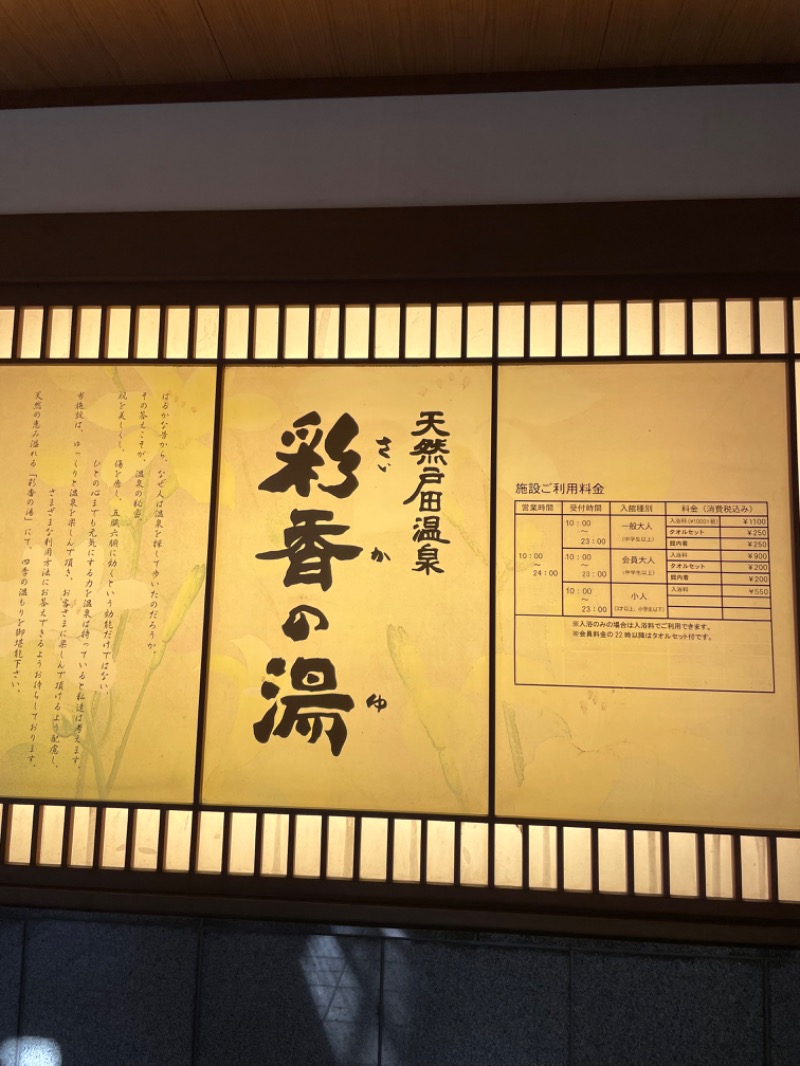 はるかな昔から、なぜ人は温泉を探して歩いたのだろうか。
その答えこそが、温泉の秘密。
肌を美しくし、傷を癒し、五臓六腑に効くという効能だけではない、
ひとの心までも元気にする力を温泉は持っていると私達は考えます。
当施設は、ゆっくりと温泉を楽しんで頂き、お客さまに楽しんで頂けるよう配慮し、
さまざまな利用方法にお答えできるようお待ちしております。
天然の恵み溢れる「彩香の湯」にて、四季の温もりを御堪能下さい。
天然戸田温泉
彩香の湯
さい か ゆ
施設ご利用料金
営業時間 受付時間 入館種別 料金（消費税込み）
10：00～24：00
10：00～23：00 一般大人（中学生以上）
入浴料(¥1000＋税) ¥1100
タオルセット ¥250
館内着 ¥250
10：00～23：00 会員大人（中学生以上）
入浴料 ¥900
タオルセット ¥200
館内着 ¥200
10：00～23：00 小人（3才以上、小学生以下）
入浴料 ¥550
※入浴のみの場合は入浴料でご利用できます。
※会員料金の22時以降はタオルセット付です。